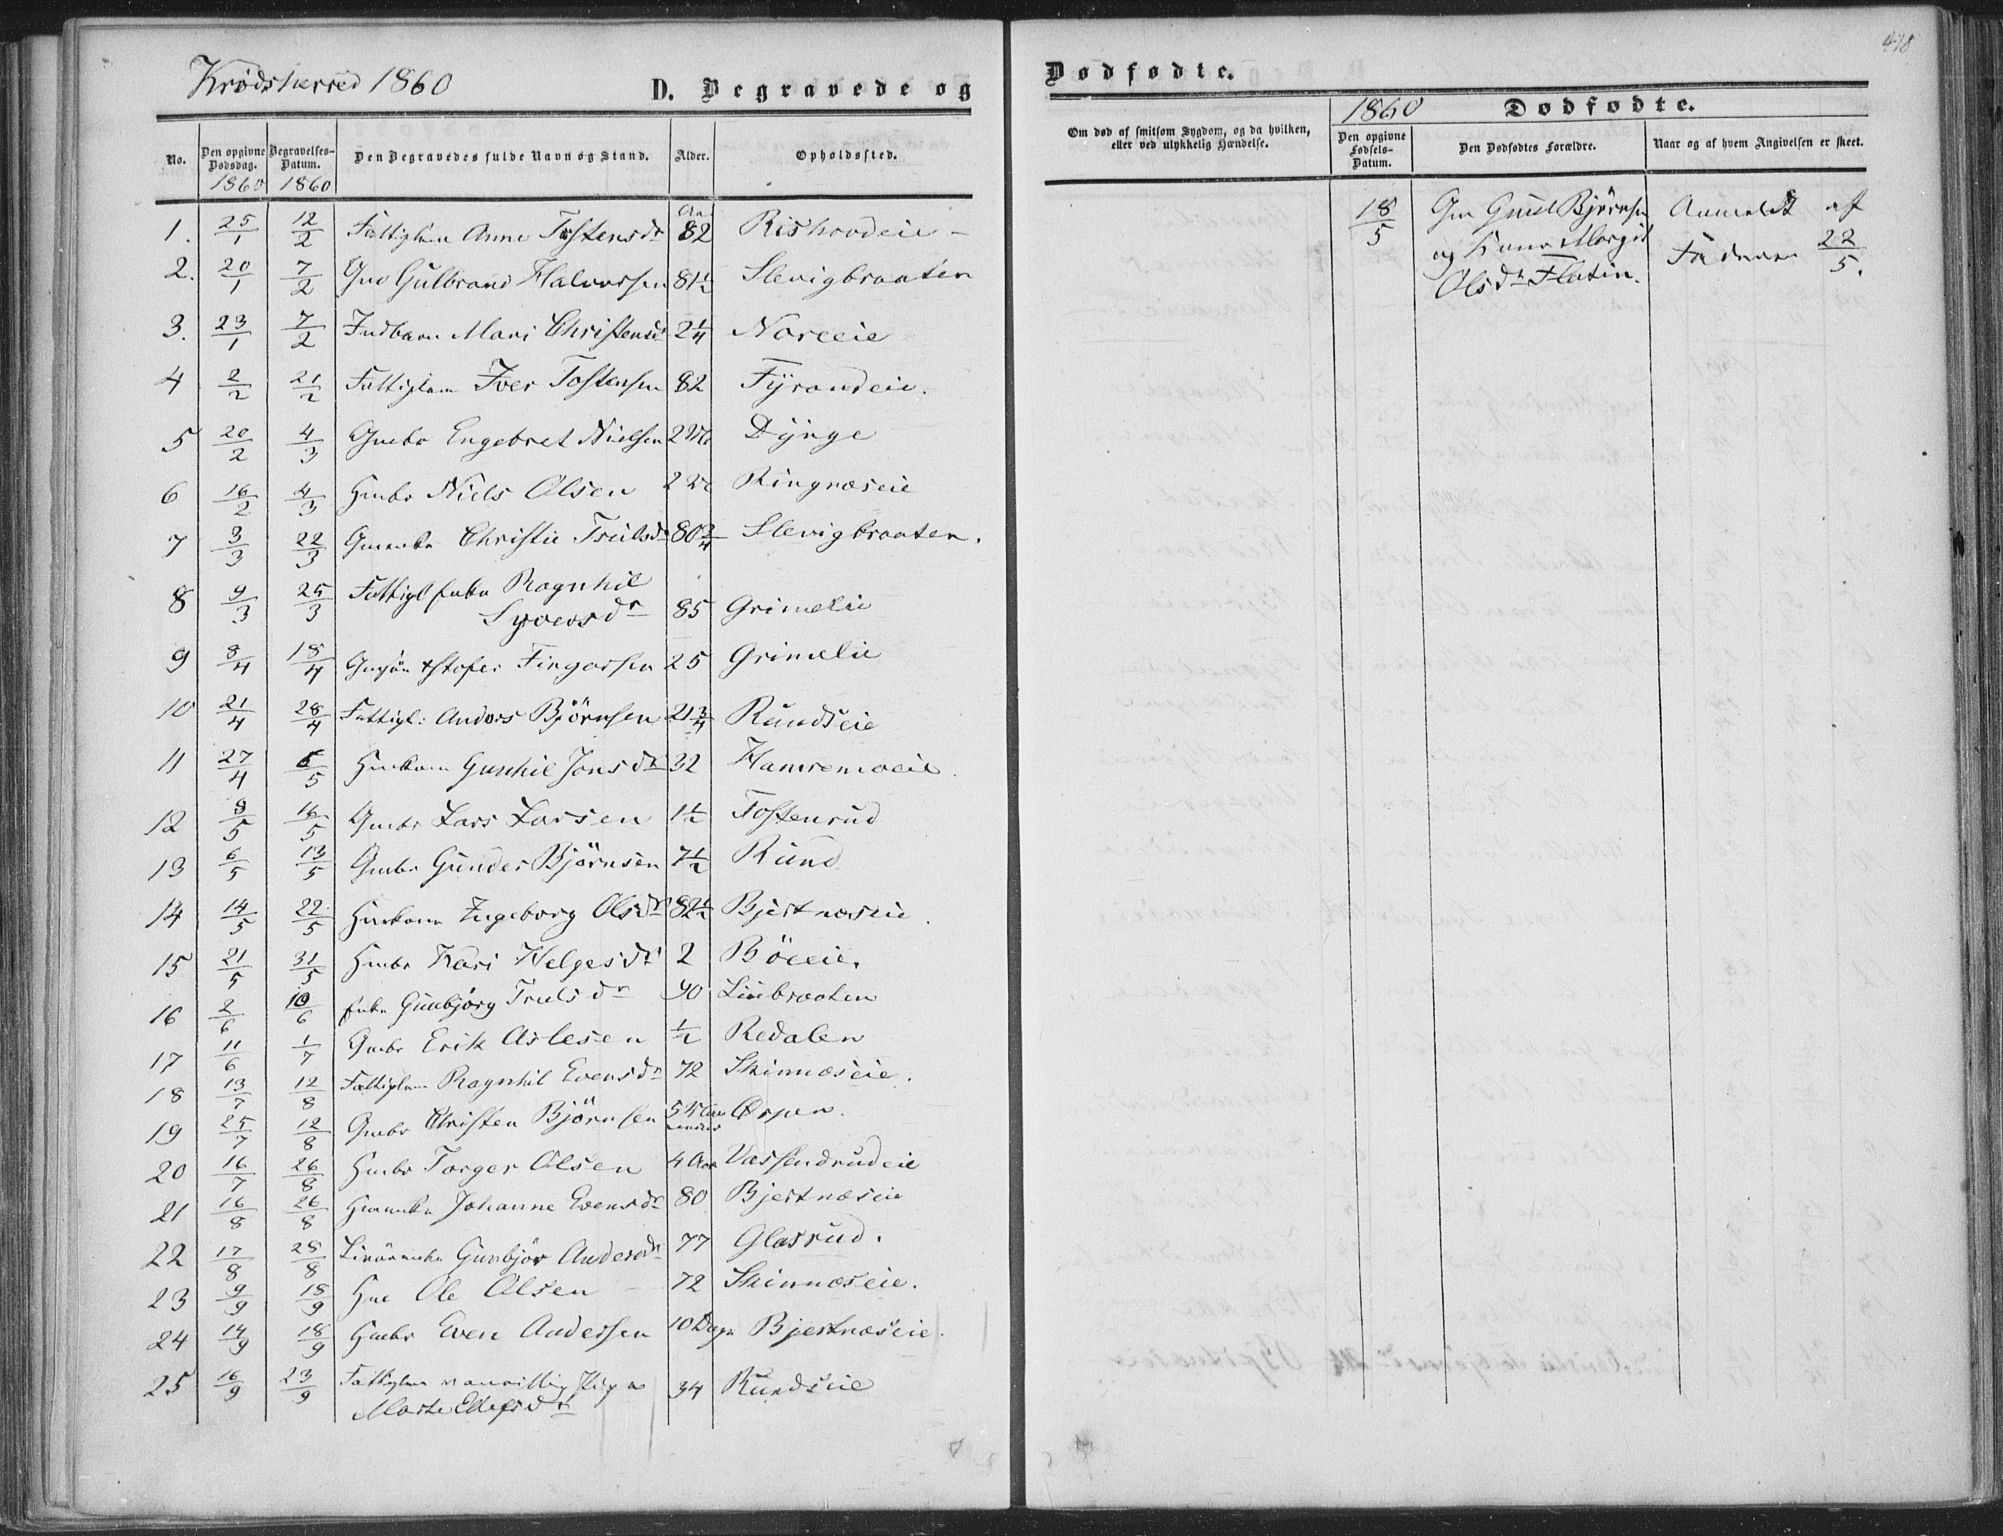 Krødsherred 1860 D. Begravede og
No. Den opgivne Dødsdag. 1860 Begravelses-Datum. 1860 Den Begravedes fulde Navn og Stand. Alder. Opholdssted.
1. 25/1 12/2 Fattiglem Anne Tostensdr Aar 82 Rishovdeie
2. 20/1 7/2 Gmd Gulbrand Halvorsen 81 1/2 Slevigbraaten
3. 23/1 7/2 Indbarn Mari Christensdr 2 1/4 Noreeie
4 2/2 21/2 Fattiglem Iver Tostensen 82 Fyrandeie.
5 20/2 4/3 Gmbr Engebret Nielsen 2 Dynge
6 16/2 4/3 Hmbr Niels Olsen 2 Ringnæseie
7 3/3 22/3 Gmenke Christie Trulsdr 80 3/4 Slevigbraaten.
8 9/3 25/3 Fattigl enke Ragnhil
Syversdr 85 Grimelie
9 8/4 18/4 Kstofer Fingarsen 25 Grimelie
10 21/4 28/4 Fattigl: Anders Bjørnsen 21 3/4 Rundseie
11 27/4 6/5 Hmkone Gunhil Jonsdr 32 Hamremoeie.
12 9/5 16/5 Gmbr Lars Larsen 1 1/2 Tostenrud
13 6/5 13/5 Gmbr Gunder Bjørnsen 7 1/2 Rund
14 14/5 22/5 Hmkone Ingeborg Olsdr 82 1/2 Bjertnæseie.
15 21/5 31/5 Hmbr Kari Helgesdr 2 Böeeie.
16 2/6 10/6 Enke Gunbjörg Trulsdr 90 Liebraaten
17 11/6 1/7 Gmbr Erik Aslesen 1/2 Redalen
18 13/7 12/8 Fattiglem Ragnhil Evensdr 72 Skinnæseie.
19 25/7 12/8 Gmbr Christen Bjørnsen 5 Ørpen.
20 16/7 26/8 Hmbr Torger Olsen 4 Aar Vassendrudeie
21 16/8 26/8 Hmenke Johanne Evensdr 80 Bjertnæseie
22 17/8 28/8 Gunbjør Andersdr 77 Glasrud.
23 9/9 18/9 Hmd Ole Olsen 72 Skinnæseie.
24 14/9 18/9 Hmbr Even Andersen 10 Dage Bjertnæseie.
25 16/9 23/9 Fattiglem vanvittig Pige 34 Rundseie
Marte Ellefsdr
Dødfødte.
Om død af smitsom Sygdom, og da hvilken, eller ved ulykkelig Hændelse.
1860 Dødfødte.
Den opgivne Fødsels-Datum. Den Dødfødtes Forældre. Naar og af hvem Angivelsen er skeet.
18/5 Gm Gul Bjørnsen Anmeldt af
og Kone Margit Faderen 22/5.
Olsdr Flatin.